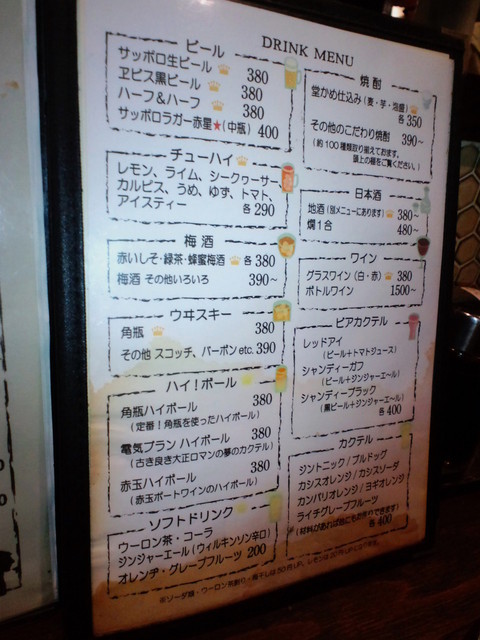 DRINK MENU
ビール
サッポロ生ビール 380
ヱビス黒ビール 380
ハーフ&ハーフ 380
サッポロラガー赤星★(中瓶) 400
チューハイ
レモン、ライム、シークヮーサー、
カルピス、うめ、ゆず、トマト、
アイスティー 各290
梅酒
赤いしそ・緑茶・蜂蜜梅酒 各380
梅酒 その他いろいろ 390~
ウヰスキー
角瓶 380
その他 スコッチ、バーボン etc. 390
ハイ!ボール
角瓶ハイボール 380
(定番!角瓶を使ったハイボール)
電気ブラン ハイボール 380
(古き良き大正ロマンの夢のカクテル)
赤玉ハイボール 380
(赤玉ポートワインのハイボール)
ソフトドリンク
ウーロン茶・コーラ
ジンジャーエール(ウィルキンソン辛口)
オレンヂ・グレープフルーツ 200
焼酎
堂かめ仕込み(麦・芋・泡盛)
各350
その他のこだわり焼酎 390~
(約100種類取り揃えております。
頭上の棚をご覧ください。)
日本酒
地酒(別メニューにあります) 380~
燗1合 480~
ワイン
グラスワイン(白・赤) 380
ボトルワイン 1500~
ビアカクテル
レッドアイ
(ビール+トマトジュース)
シャンディーガフ
(ビール+ジンジャーエ~ル)
シャンディーブラック
(黒ビール+ジンジャーエ~ル)
各400
カクテル
ジントニック/ブルドッグ
カシスオレンジ/カシスソーダ
カンパリオレンジ/ヨギオレンジ
ライチグレープフルーツ
(材料があれば他にもお作りできます)
各400